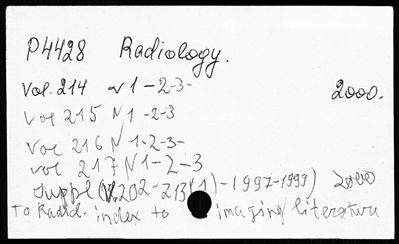 P4428 Radiology.
Vol. 214 N 1-2-3- 2000.
Vol 215 N 1-2-3
Vol 216 N 1-2-3-
vol 217 N 1-2-3
Suppl (V.202-213(1)-1997-1999) 2000
To Radiol. index to imaging literature